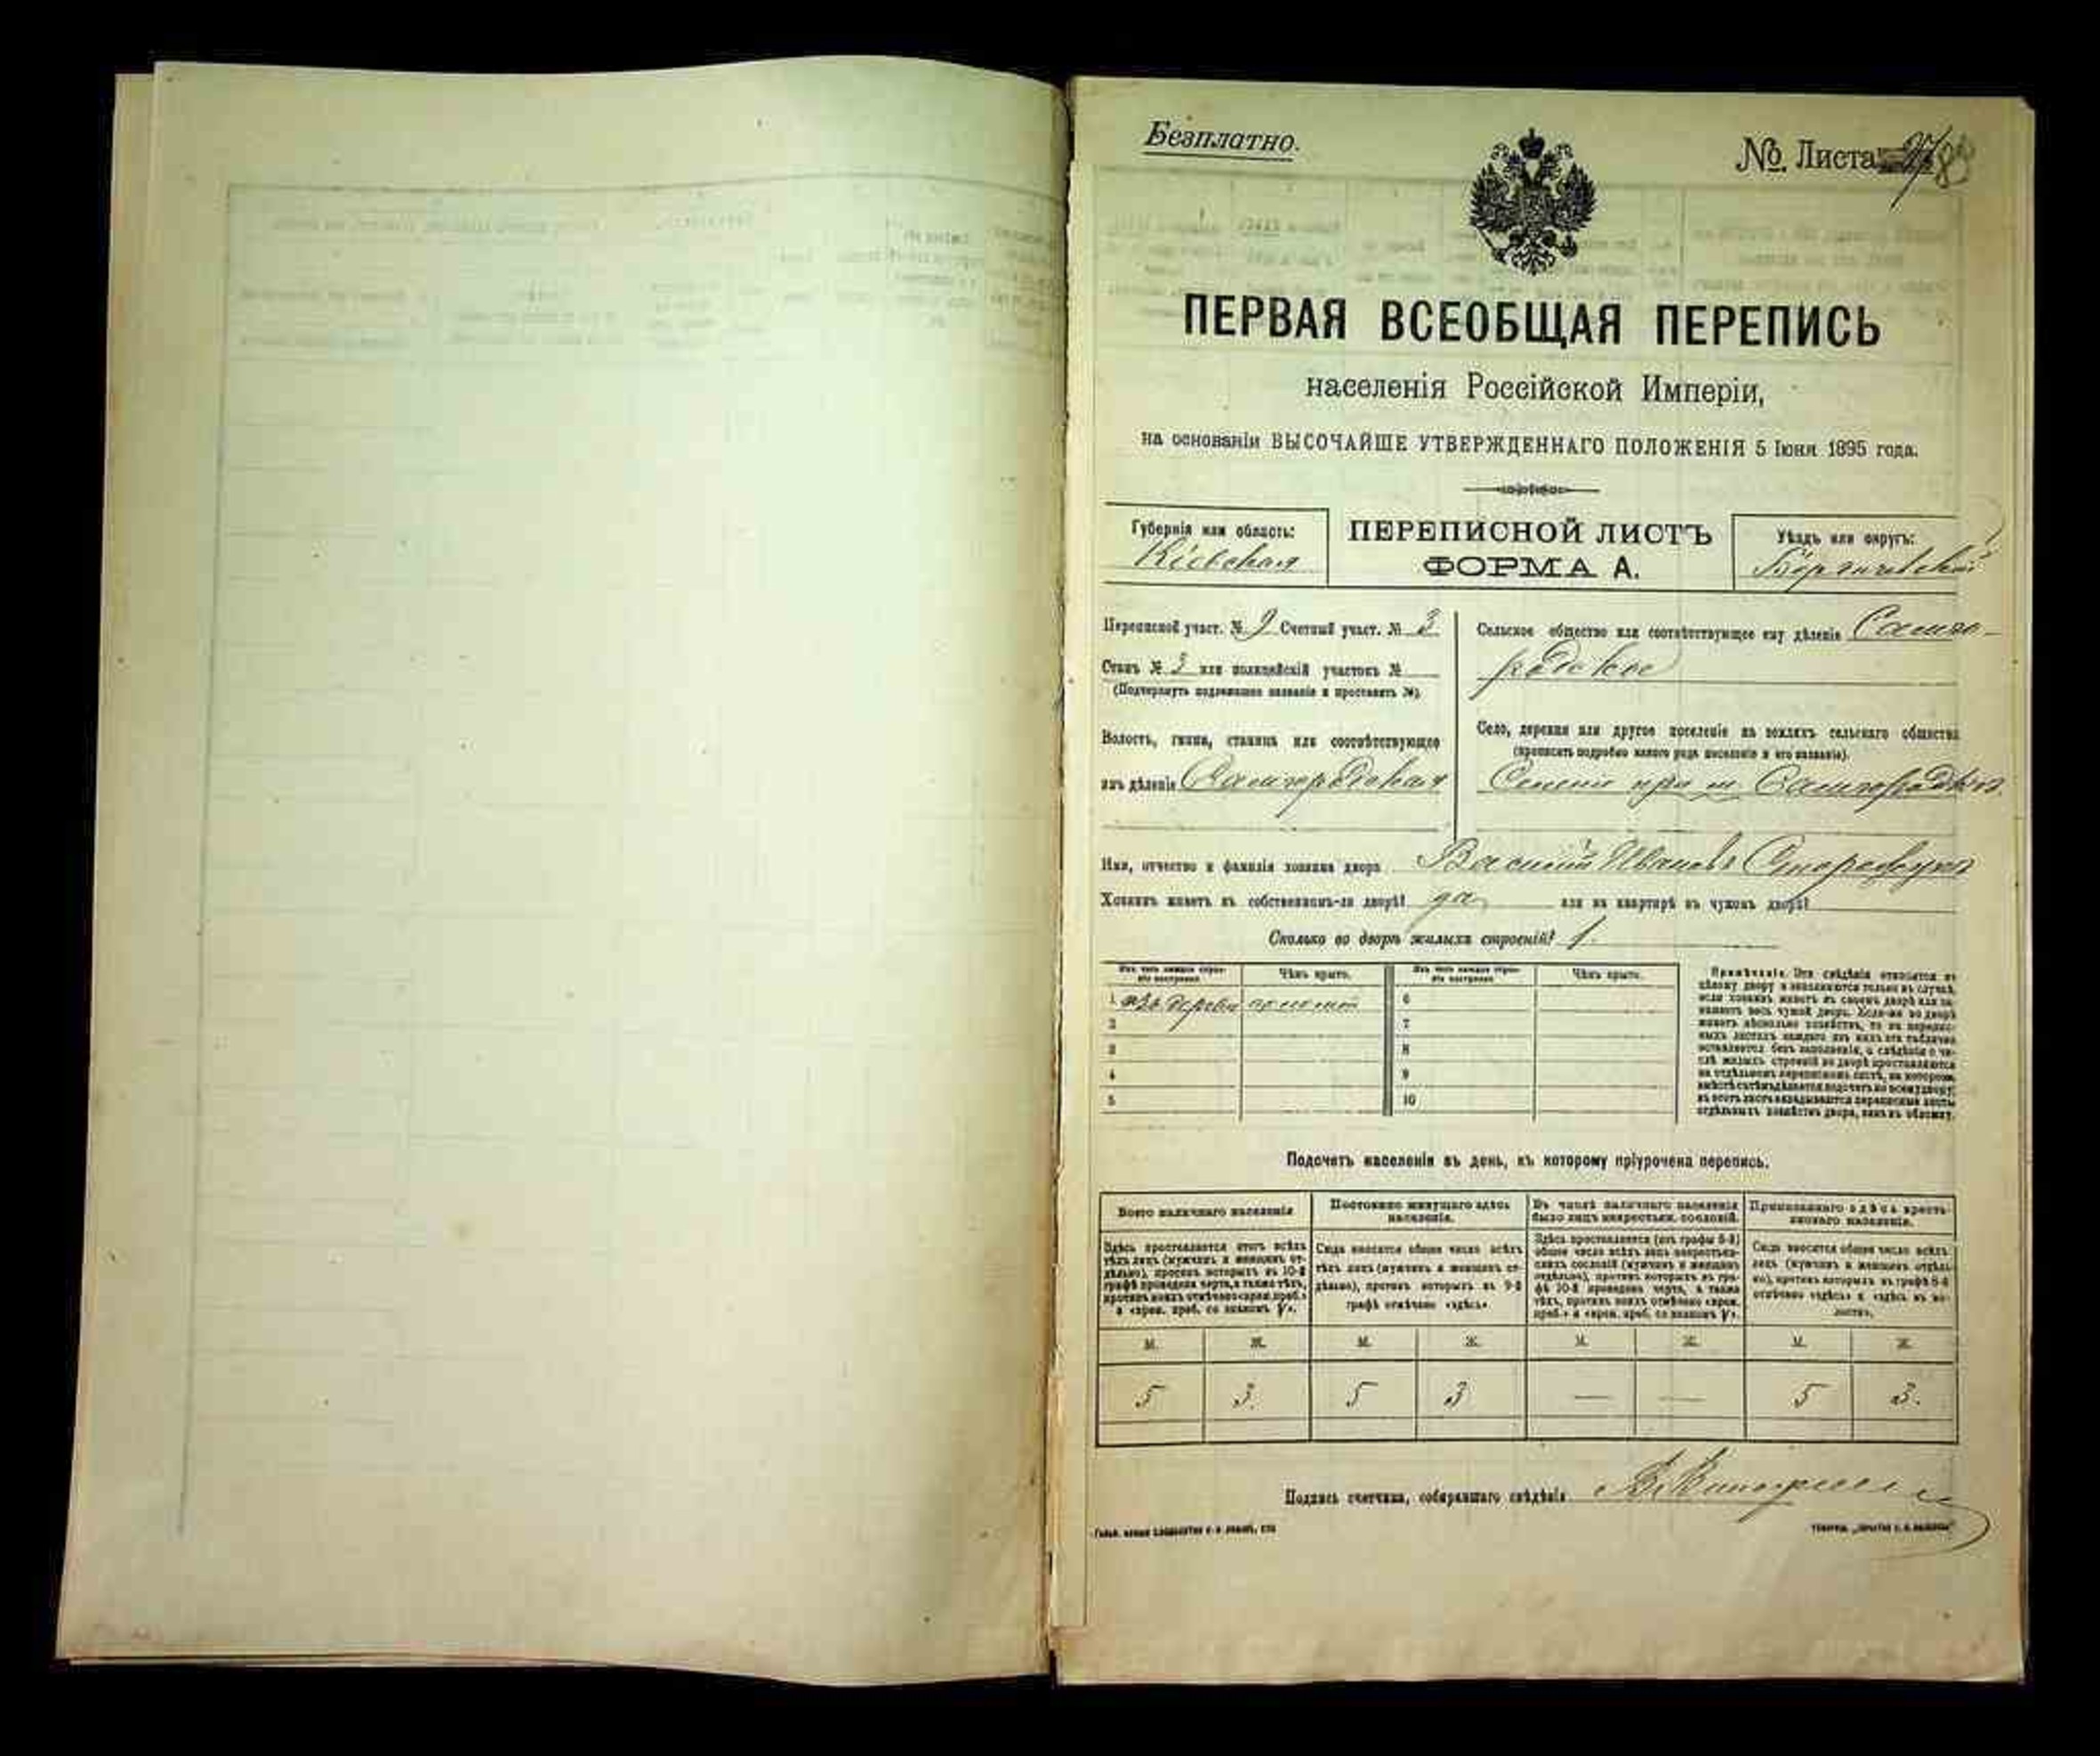 Безплатно.
№ Листа
ПЕРВАЯ ВСЕОБЩАЯ ПЕРЕПИСЬ
населенія Россійской Имперіи,
на основаніи ВЫСОЧАЙШЕ УТВЕРЖДЕННАГО ПОЛОЖЕНІЯ 5 Іюня 1895 года.
Губернія или область:
Кіевская
ПЕРЕПИСНОЙ ЛИСТЪ
ФОРМА А.
Уѣздъ или округъ:
Бердичевскій
Переписной участ. № 9 Счетный участ. № 3
Станъ № 3 или полицейскій участокъ №
(Подчеркнуть подлежащее названіе и проставить №).
Волость, гмина, станица или соотвѣтствующее
имъ дѣленіе Самгородская
Сельское общество или соотвѣтствующее ему дѣленіе Самго-
родское
Село, деревня или другое поселеніе на земляхъ сельскаго общества
(прописать подробно какого рода поселеніе и его названіе).
при м. Самгородкѣ
Имя, отчество и фамилія хозяина двора Василій Ивановъ
Хозяинъ живетъ въ собственномъ-ли дворѣ? да или на квартирѣ въ чужомъ дворѣ?
Сколько во дворѣ жилыхъ строеній? 1.
Изъ чего каждое строеніе построено. Чѣмъ крыто. Изъ чего каждое строеніе построено. Чѣмъ крыто.
1 изъ дерева соломой 6
2 7
3 8
4 9
5 10
Примѣчаніе. Эти свѣдѣнія относятся къ
цѣлому двору и заполняются только въ случаѣ,
если хозяинъ живетъ въ своемъ дворѣ или за-
нимаетъ весь чужой дворъ. Если-же во дворѣ
живетъ нѣсколько хозяйствъ, то на перепис-
ныхъ листахъ каждаго изъ нихъ эта табличка
оставляется безъ заполненія, а свѣдѣнія о чи-
слѣ жилыхъ строеній во дворѣ проставляются
на отдѣльномъ переписномъ листѣ, на которомъ
вмѣстѣ съ тѣмъ дѣлается подсчетъ по всему двору;
въ этотъ листъ вкладываются переписные листы
отдѣльныхъ хозяйствъ двора, какъ въ обложку.
Подсчетъ населенія въ день, къ которому пріурочена перепись.
Всего наличнаго населенія
Здѣсь проставляется итогъ всѣхъ
тѣхъ лицъ (мужчинъ и женщинъ от-
дѣльно), противъ которыхъ въ 10-й
графѣ проведена черта, а также тѣхъ,
противъ коихъ отмѣчено «врем. преб.»
и «врем. преб. со знакомъ V».
Постоянно живущаго здѣсь
населенія.
Сюда вносится общее число всѣхъ
тѣхъ лицъ (мужчинъ и женщинъ от-
дѣльно), противъ которыхъ въ 9-й
графѣ отмѣчено «здѣсь»
Въ числѣ наличнаго населенія
было лицъ некрестьян. сословій.
Здѣсь проставляется (изъ графы 6-й)
общее число всѣхъ лицъ некрестьян-
скихъ сословій (мужчинъ и женщинъ
отдѣльно), противъ которыхъ въ гра-
фѣ 10-й проведена черта, а также
тѣхъ, противъ коихъ отмѣчено «врем.
преб.» и «врем. преб. со знакомъ V».
Приписаннаго здѣсь кресть-
янскаго населенія.
Сюда вносится общее число всѣхъ
лицъ (мужчинъ и женщинъ отдѣль-
но), противъ которыхъ въ графѣ 8-й
отмѣчено «здѣсь» и «здѣсь въ во-
лости».
М. Ж. М. Ж. М. Ж. М. Ж.
5 3. 5 3 — — 5 3.
Подпись счетчика, собиравшаго свѣдѣнія